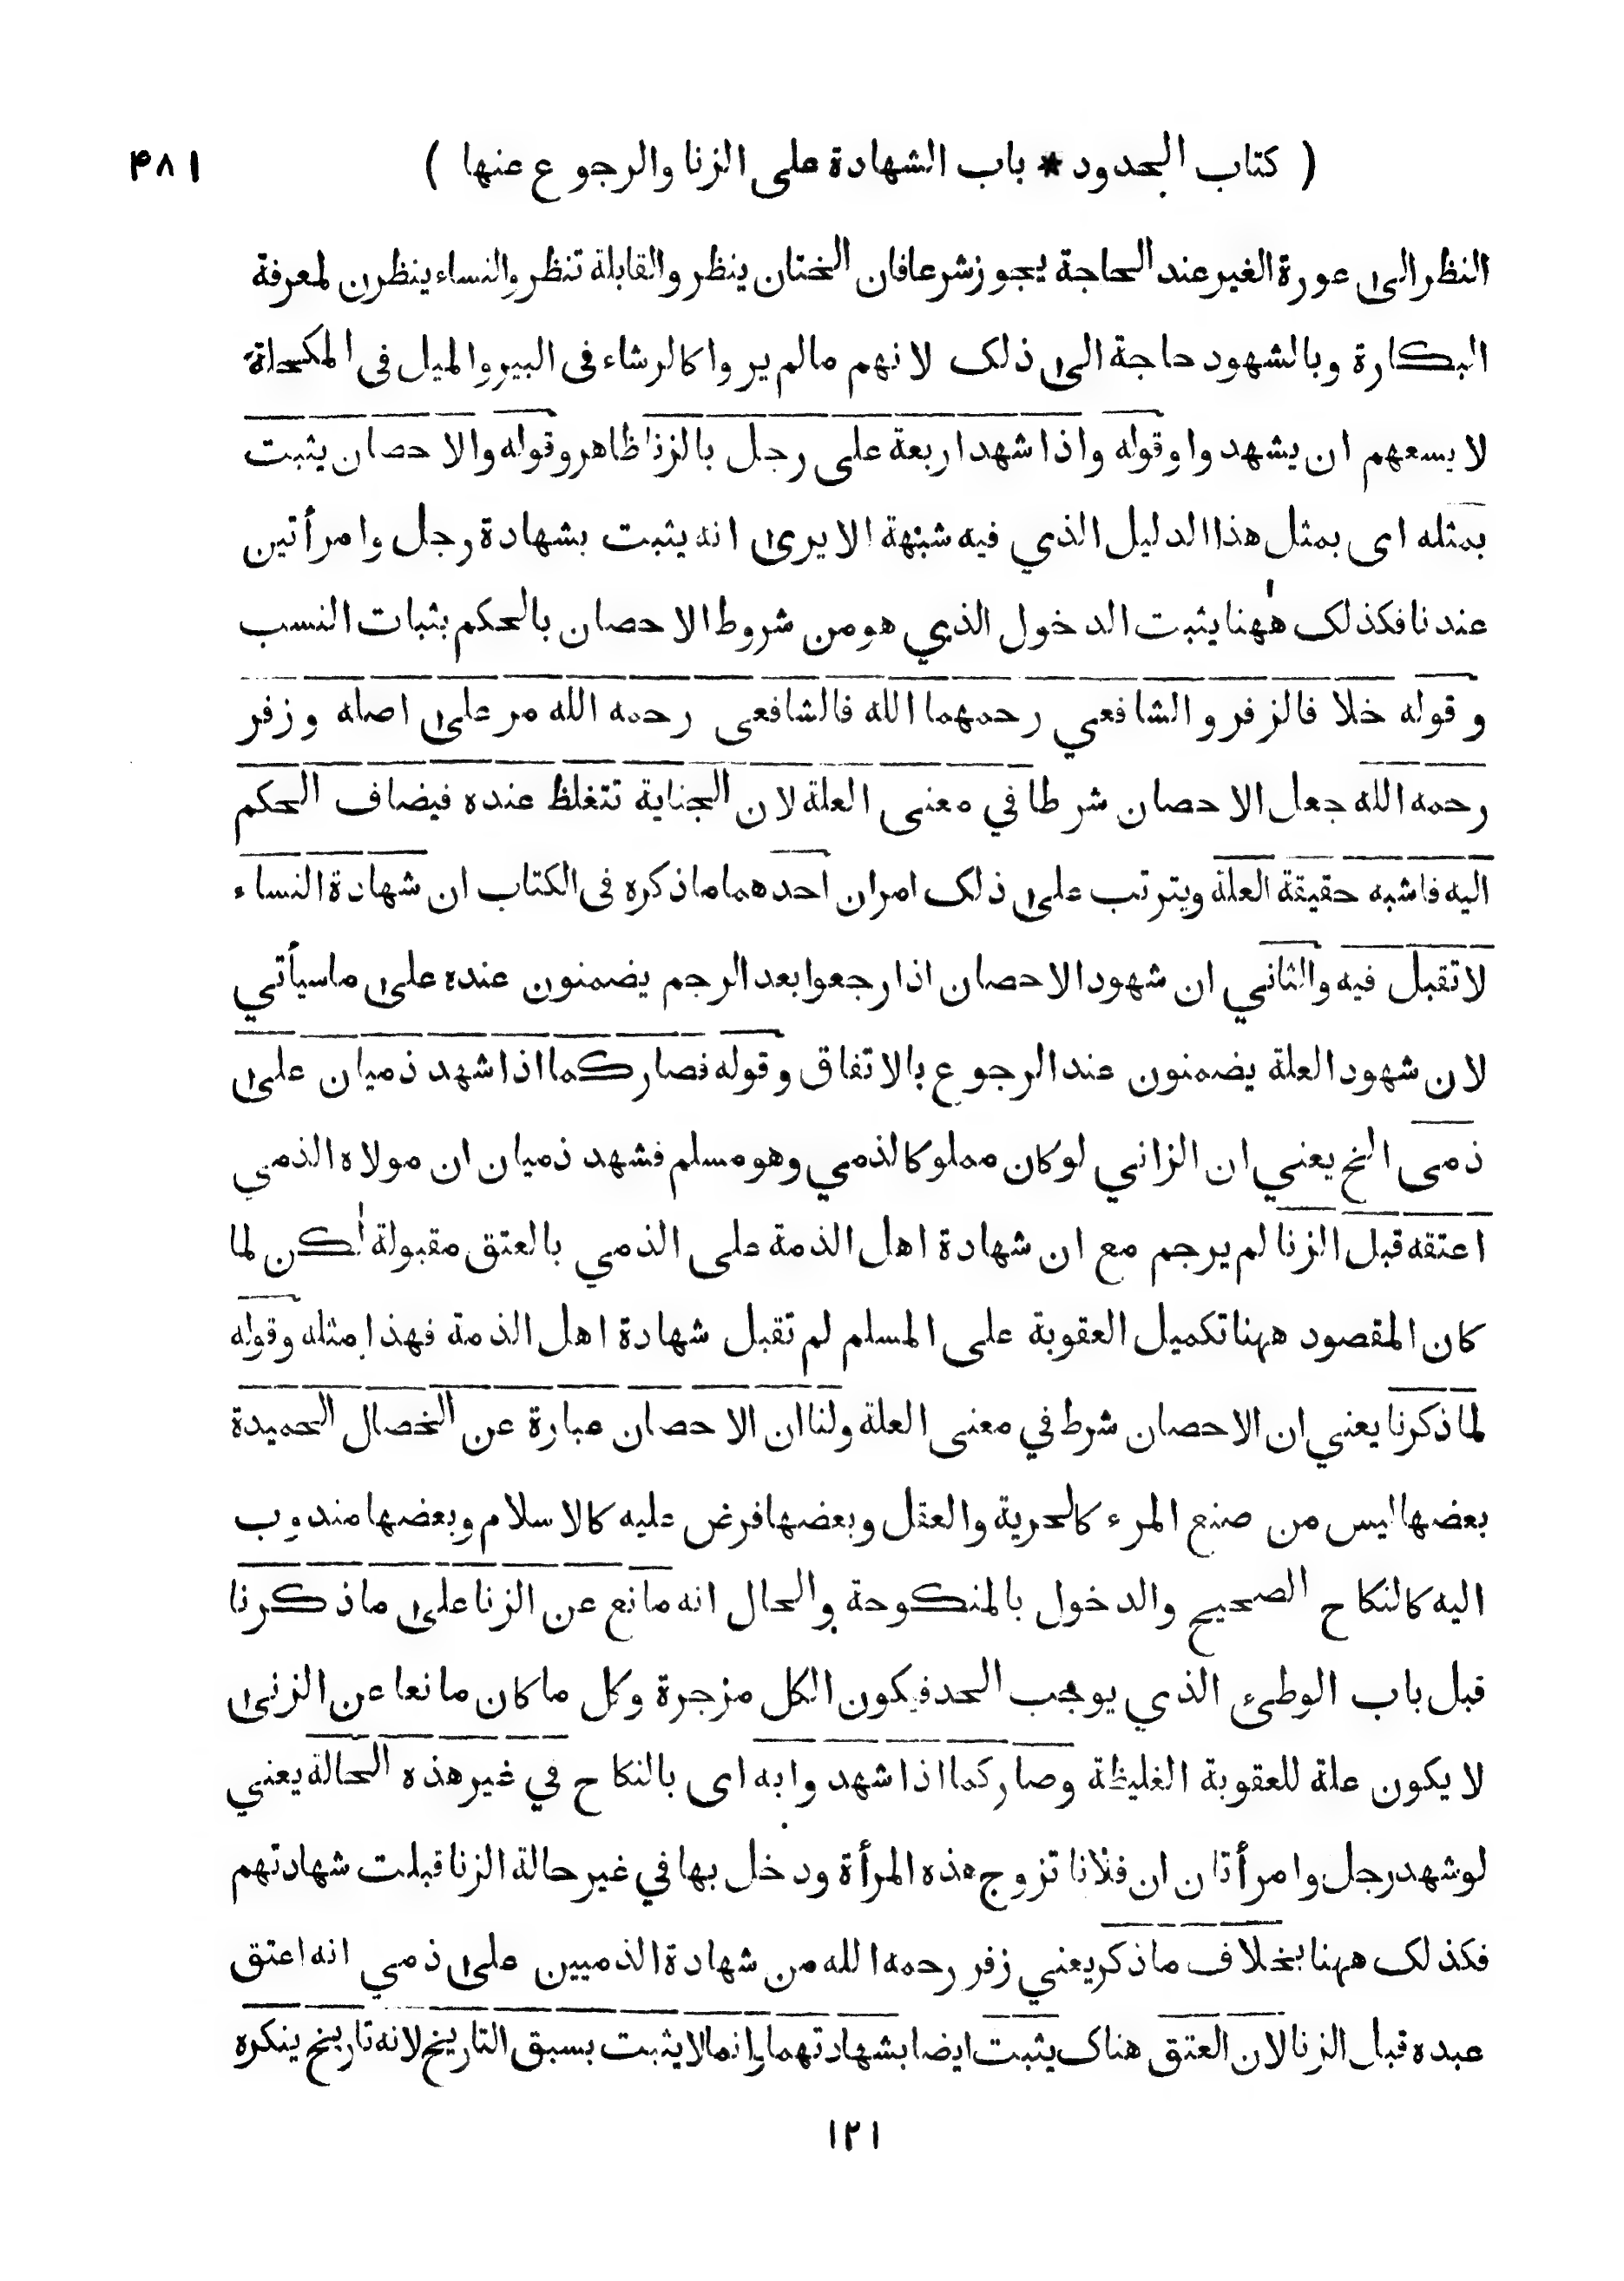 ( كتاب الحدود * باب الشهادة على الزنا والرجوع عنها )
۴۸۱
النظر الى عورة الغير عند الحاجة يجوز شرعا فان الختان ينظر والقابلة تنظر والنساء ينظرن لمعرفة
البكارة وبالشهود حاجة الى ذلك لانهم مالم يروا كالرشاء فى البير والميل فى المكحلة
لا يسعهم ان يشهدوا وقوله واذا شهد اربعة على رجل بالزنا ظاهر وقوله والاحصان يثبت
بمثله اى بمثل هذا الدليل الذي فيه شبهة الا يرى انه يثبت بشهادة رجل وامرأتين
عندنا فكذلك ههنا يثبت الدخول الذي هو من شروط الاحصان بالحكم بثبات النسب
وقوله خلافا لزفر والشافعي رحمهما الله فالشافعى رحمه الله مر على اصله وزفر
رحمه الله جعل الاحصان شرطا في معنى العلة لان الجناية تتغلظ عنده فيضاف الحكم
اليه فاشبه حقيقة العلة ويترتب على ذلك امران احدهما ماذكره فى الكتاب ان شهادة النساء
لا تقبل فيه والثاني ان شهود الاحصان اذا رجعوا بعد الرجم يضمنون عنده على ماسيأتي
لان شهود العلة يضمنون عند الرجوع بالاتفاق وقوله فصار كما اذا شهد ذميان على
ذمى الخ يعني ان الزاني لو كان مملوكا لذمي وهو مسلم فشهد ذميان ان مولاه الذمي
اعتقه قبل الزنا لم يرجم مع ان شهادة اهل الذمة على الذمي بالعتق مقبولة لكن لما
كان المقصود ههنا تكميل العقوبة على المسلم لم تقبل شهادة اهل الذمة فهذا مثله وقوله
لما ذكرنا يعني ان الاحصان شرط في معنى العلة ولنا ان الاحصان عبارة عن الخصال الحميدة
بعضها ليس من صنع المرء كالحرية والعقل وبعضها فرض عليه كالاسلام وبعضها مندوب
اليه كالنكاح الصحيح والدخول بالمنكوحة والحال انه مانع عن الزنا على ماذكرنا
قبل باب الوطئ الذي يوجب الحد فيكون الكل مزجرة وكل ماكان مانعا عن الزنى
لا يكون علة للعقوبة الغليظة وصار كما اذا شهدوا به اى بالنكاح في غير هذه الحالة يعني
لو شهد رجل وامرأتان ان فلانا تزوج هذه المرأة ودخل بها في غير حالة الزنا قبلت شهادتهم
فكذلك ههنا بخلاف ماذكر يعني زفر رحمه الله من شهادة الذميين على ذمي انه اعتق
عبده قبل الزنا لان العتق هناك يثبت ايضا بشهادتهما وانما لا يثبت بسبق التاريخ لانه تاريخ ينكره
۱۲۱